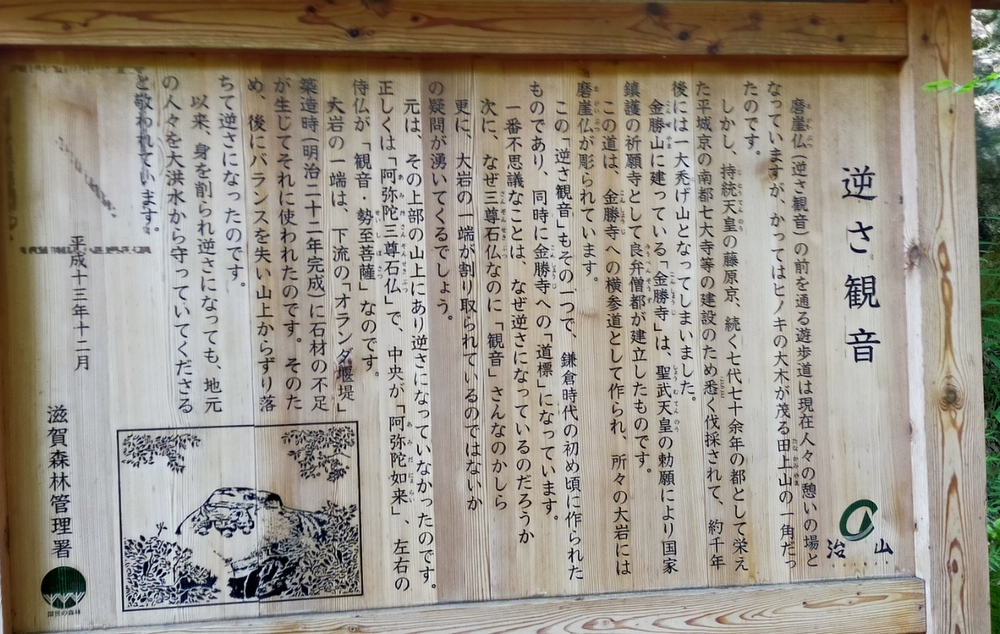 逆さ観音
治山
磨崖仏(逆さ観音)の前を通る遊歩道は現在人々の憩いの場と
なっていますが、かつてはヒノキの大木が茂る田上山の一角だっ
たのです。
しかし、持統天皇の藤原京、続く七代七十余年の都として栄え
た平城京の南都七大寺等の建設のため悉く伐採されて、約千年
後には一大禿げ山となってしまいました。
金勝山に建っている「金勝寺」は、聖武天皇の勅願により国家
鎮護の祈願寺として良弁僧都が建立したものです。
この道は、金勝寺への横参道として作られ、所々の大岩には
磨崖仏が彫られています。
この「逆さ観音」もその一つで、鎌倉時代の初め頃に作られた
ものであり、同時に金勝寺への「道標」になっています。
一番不思議なことは、なぜ逆さになっているのだろうか
次に、なぜ三尊石仏なのに「観音」さんなのかしら
更に、大岩の一端が割り取られているのではないか
の疑問が湧いてくるでしょう。
元は、その上部の山上にあり逆さになっていなかったのです。
正しくは「阿弥陀三尊石仏」で、中央が「阿弥陀如来」、左右の
侍仏が「観音・勢至菩薩」なのです。
大岩の一端は、下流の「オランダ堰堤」
築造時(明治二十二年完成)に石材の不足
が生じてそれに使われたのです。そのた
め、後にバランスを失い山上からずり落
ちて逆さになったのです。
以来、身を削られ逆さになっても、地元
の人々を大洪水から守っていてくださる
と敬われています。
平成十三年十二月
滋賀森林管理署